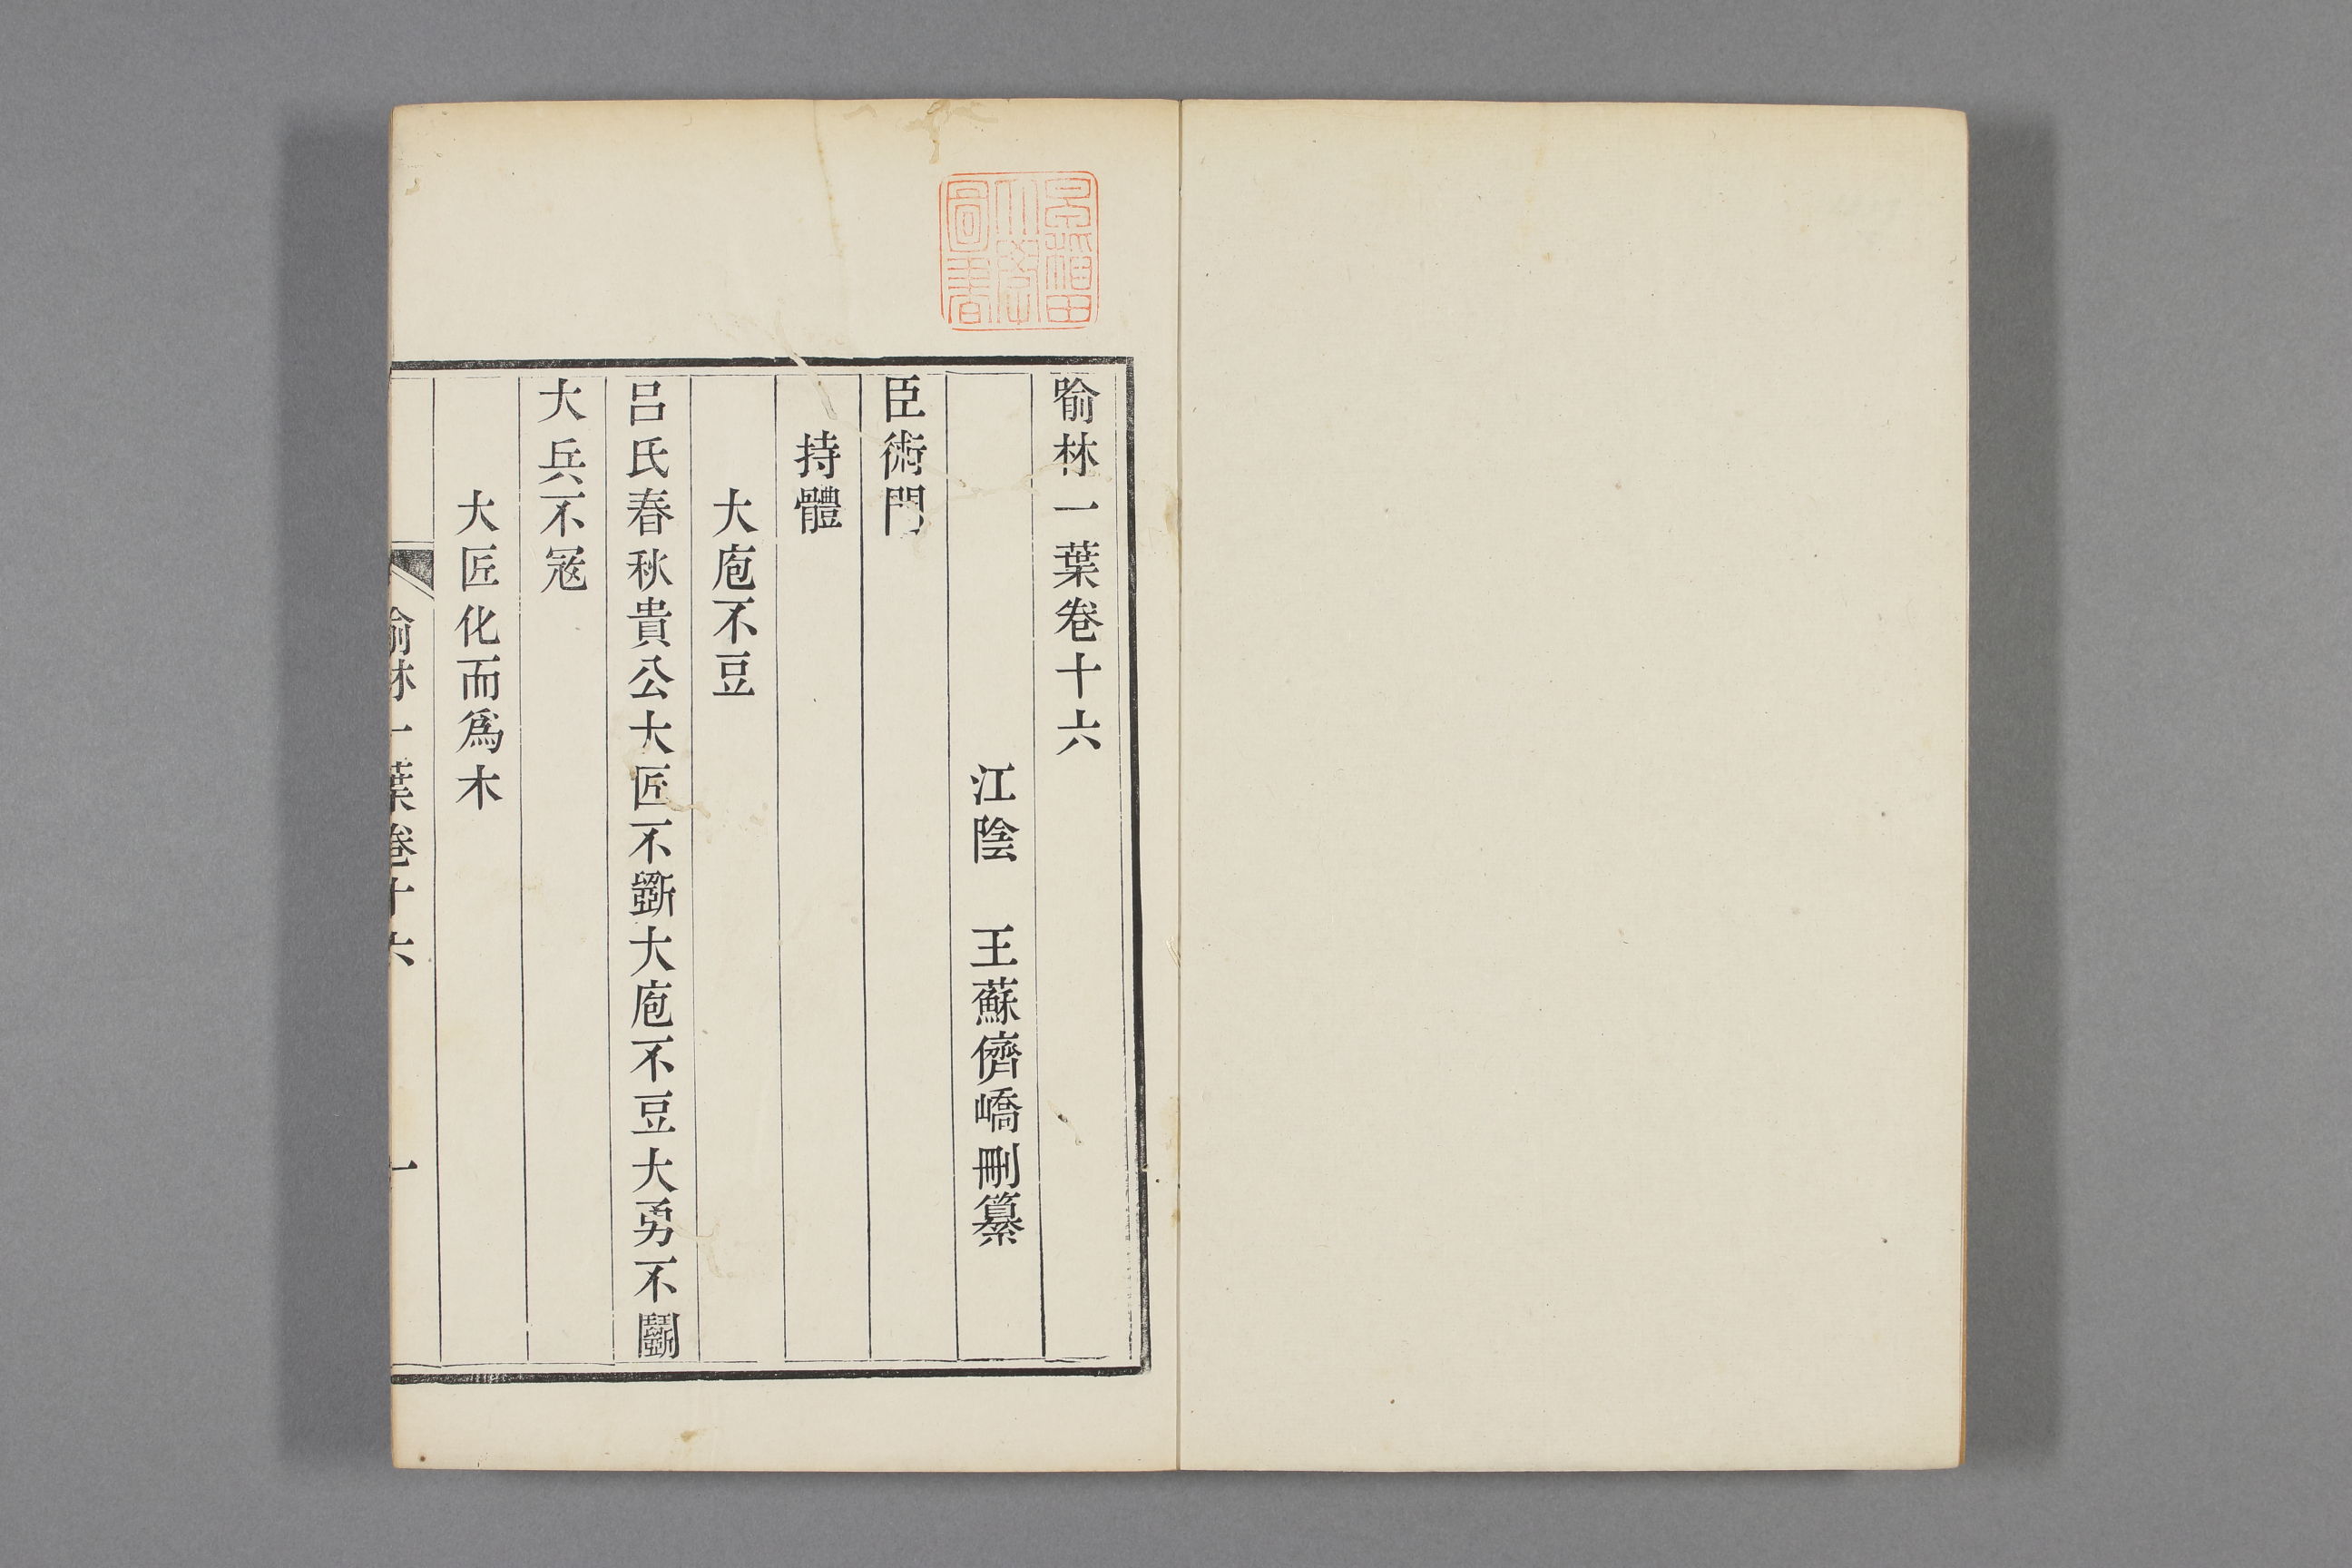 喻林一葉卷十六
江陰　王蘇儕嶠刪纂
臣術門
持體
大庖不豆
呂氏春秋貴公大匠不斵大庖不豆大勇不鬭
大兵不寇
大匠化而爲木
喻林一葉卷十六
一
早稻田
大學
圖書